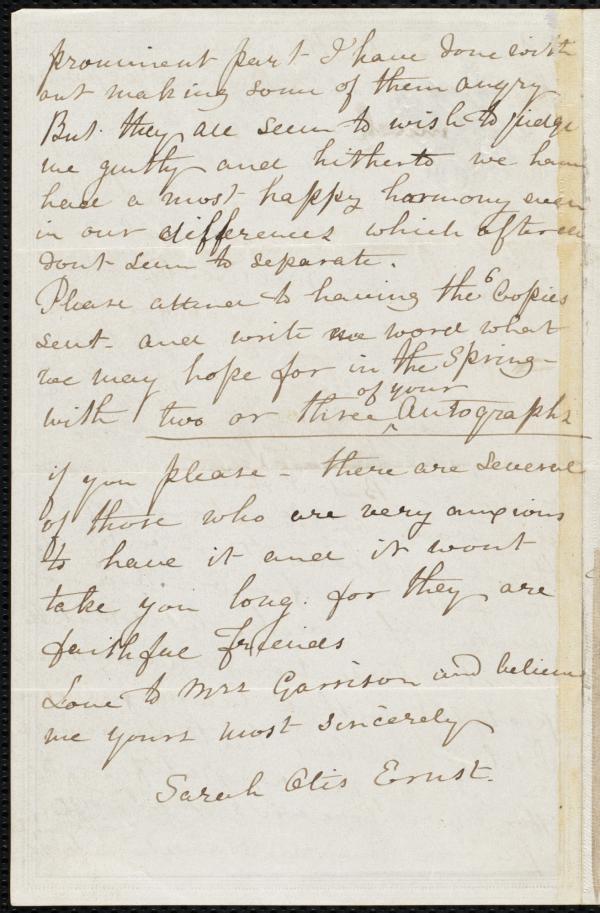 prominent part I have done with
out making some of them angry
But they all seem to wish to judge
me guilty and hitherto we have
had a most happy harmony even
in our differences which after all
dont seem to separate.
Please attend to having the 6 Copies
sent - and write me word what
we may hope for in the Spring -
of your
with two or three ^ Autographs
if you please - there are several
of those who are very anxious
to have it and it wont
take you long. for they are
faithful friends
Love to Mrs Garrison and believe
me yours most sincerely
Sarah Otis Ernst.